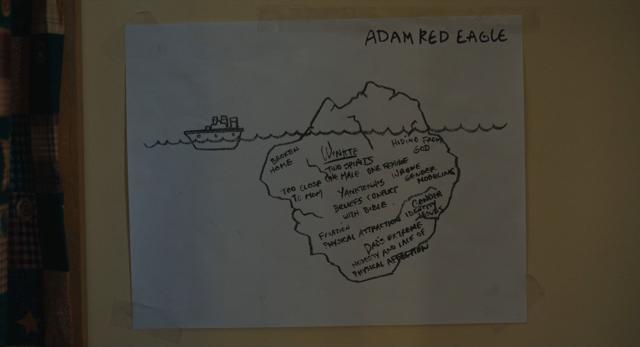 ADAM RED EAGLE
BROKEN
HOME
WINKTE
TWO SPIRITS
ONE MALE ONE FEMALE
HIDING FROM
GOD
TOO CLOSE
TO MOM
YANKTONAIS
BELIEFS CONFLICT
WITH BIBLE
WRONG
GENDER
MODELING
GENDER
IDENTITY
ISSUES
PHYSICAL ATTRACTION
DAD'S EXTREME
MODESTY AND LACK OF
PHYSICAL AFFECTION